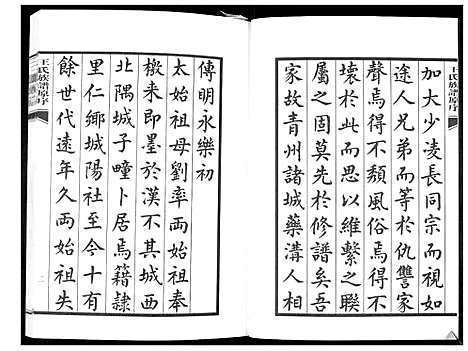 王氏族譜原序
加大少凌長同宗而視如
途人兄弟而等於仇讐家
聲焉得不頹風俗焉得不
壞於此而思以維繫之聯
屬之固莫先於修譜矣吾
家故青州諸城藥溝人相
傳明永樂初
太始祖母劉率両始祖奉
檄來即墨於漢不其城西
北隅城子疃卜居焉籍隷
里仁鄉城陽社至今十有
餘世代遠年久両始祖失
王氏族譜原序
二